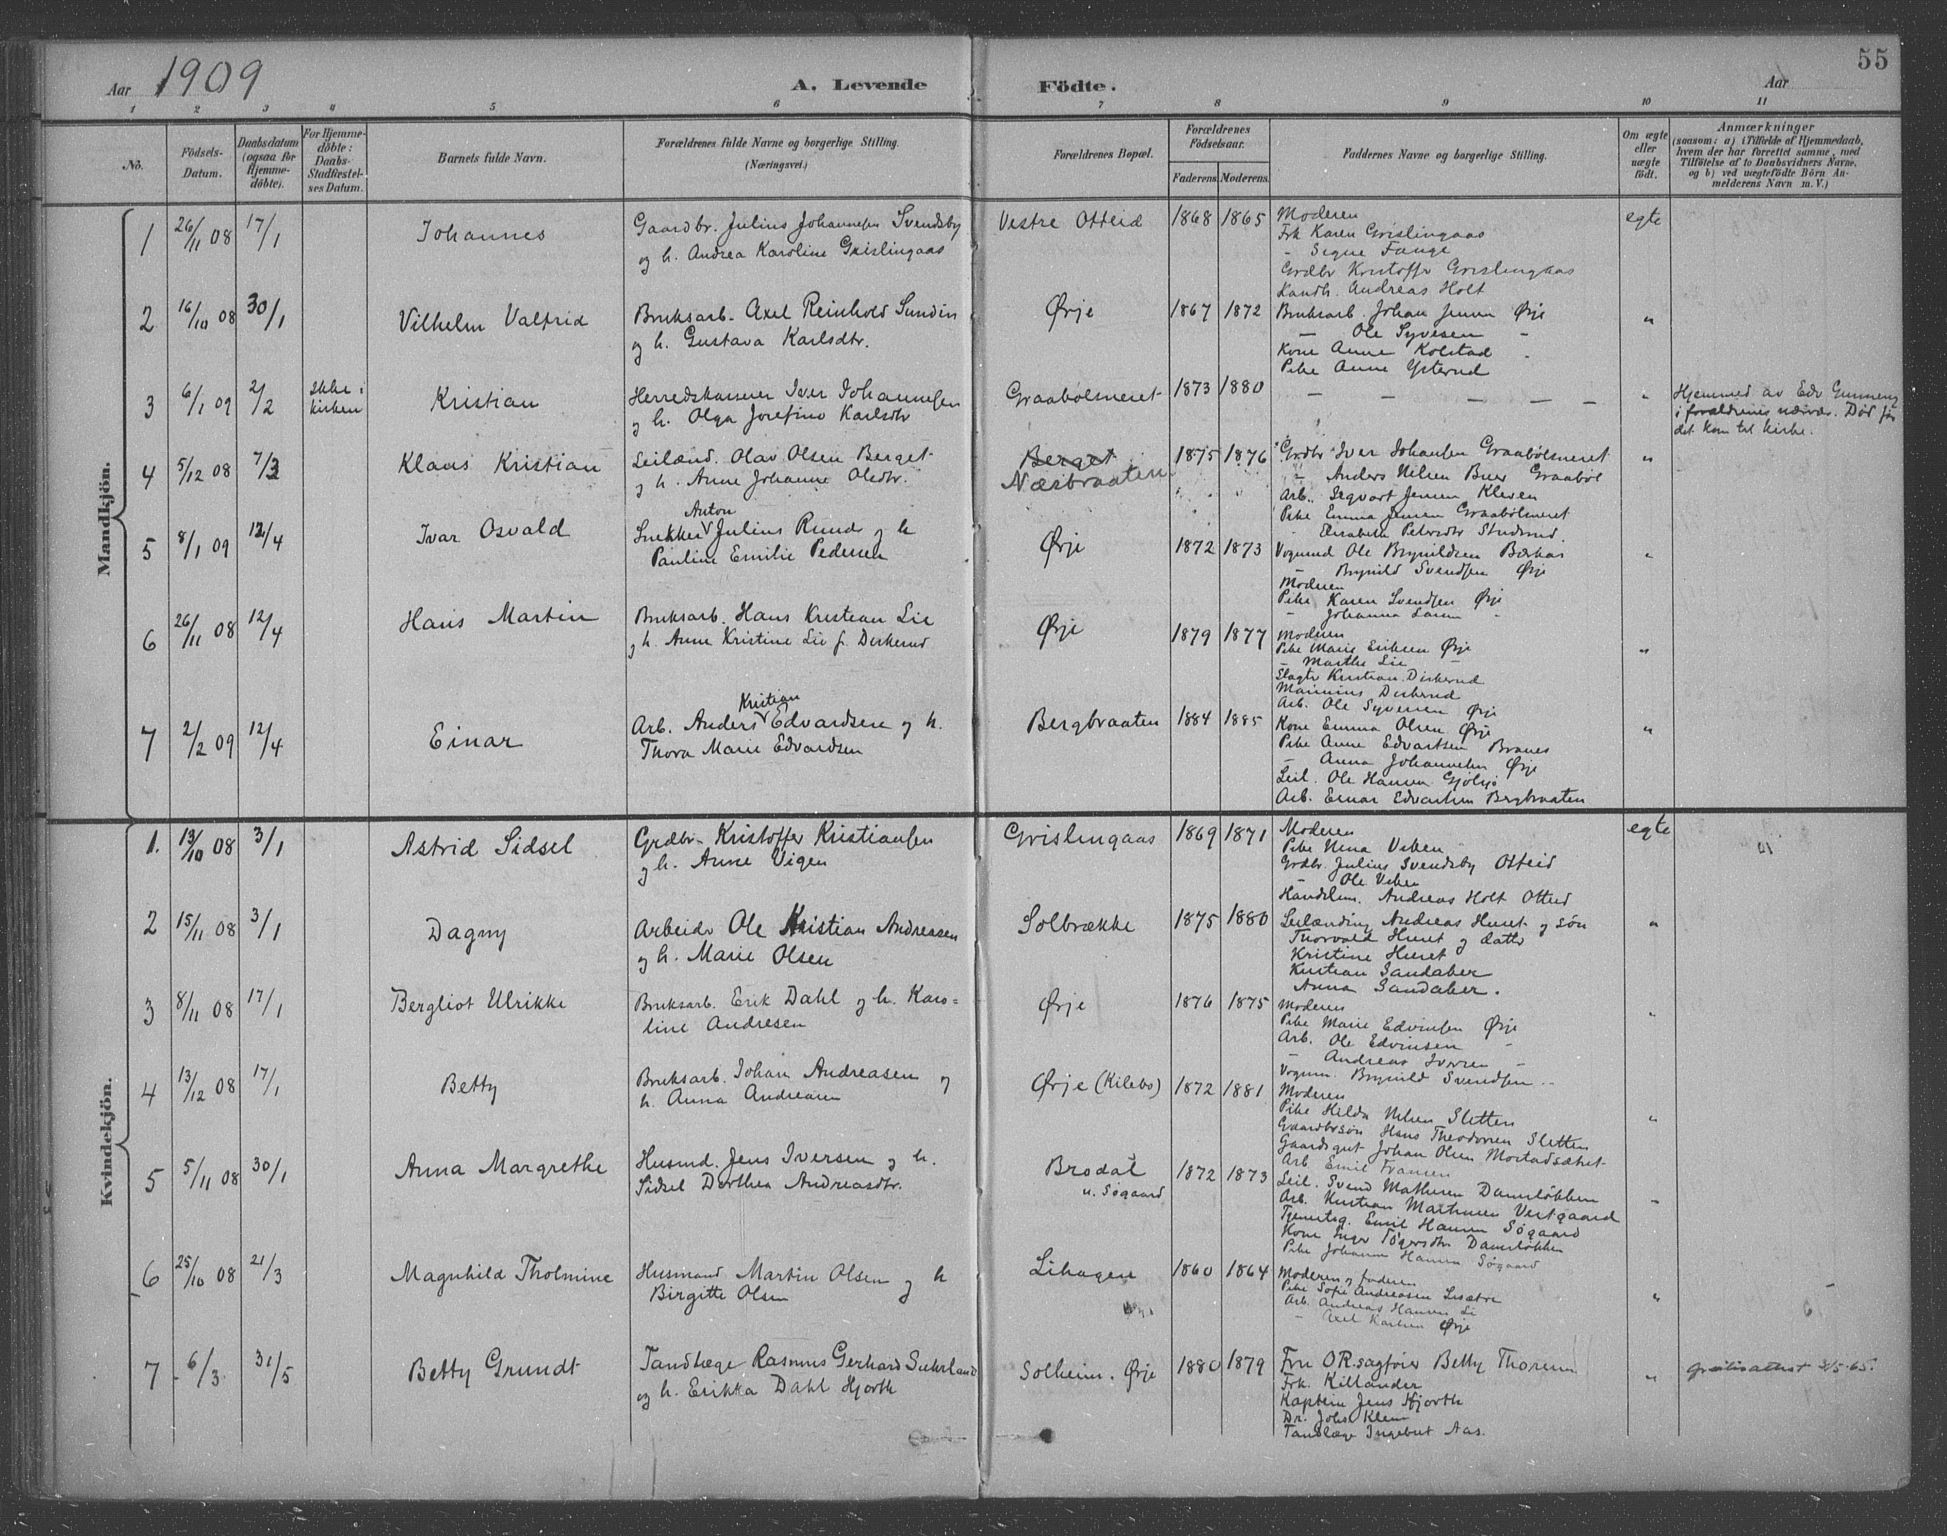 55
Aar 1909
A. Levende Födte.
Aar
1 2 3 4 5 6 7 8 9 10 11
No.
Födsels-Datum.
Daabsdatum (ogsaa for Hjemme-döbte).
For Hjemme-döbte: Daabs-Stadfæstel-ses Datum.
Barnets fulde Navn.
Forældrenes fulde Navne og borgerlige Stilling. (Næringsvei.)
Forældrenes Bopæl.
Forældrenes Födselsaar.
Faderens. Moderens.
Faddernes Navne og borgerlige Stilling.
Om ægte eller uægte födt.
Anmærkninger
(saasom: a) i Tilfælde af Hjemmedaab, hvem der har forrettet samme, med Tilföielse af to Daabsvidners Navne, og b) ved uægtefödte Börn An-melderens Navn m. V.)
Mandkjön.
1 26/11 08 17/1 Johannes
Gaardbr. Julius Johannesen Svendsby
og h. Andrea Karoline Grislingaas
Vestre Otteid 1868 1865
Moderen
Frk Karen Grislingaas
- Signe Fange
Grdbr Kristoffer Grislingaas
Handh. Andreas Holt
egte
2 16/10 08 30/1 Vilhelm Valfrid
Bruksarb. Axel Reinhold Sundin
og h. Gustava Karlsdtr.
Ørje 1867 1872
Bruksarb. Johan Jensen Ørje
— Ole Syversen -
Kone Anne Kolstad -
Pike Anne Ysterud
"
3 6/1 09 2/2 ikke i kirken Kristian
Herredskasserer Iver Johannesen
og h. Olga Josefine Karlsdtr
Graabølsmeret 1873 1880
— — — — — —
"
Hjemmed av Edv Gunneng
i forældrenes nærvær. Død før
det kom til kirke.
4 5/12 08 7/3 Klaus Kristian
Leilænd. Olav Olsen Berget
og h. Anne Johanne Olsdtr.
Berget
Næsbraaten
1875 1876
Grdbr Iver Johansen Graabølsmeret
" Anders Nilsen Buer Graabøl
Arb. Sigvart Jensen Kleven
Pike Emma Jensen Graabølsmeret
- Elisabeth Petersdtr Studerud.
"
5 8/1 09 12/4 Ivar Osvald
Anton
Snekker Julius Rund og h
Pauline Emilie Pedersen
Ørje 1872 1873
Vognmd Ole Brynildsen Bærkas
— Brynild Svendsen Ørje
Moderen
Pike Karen Svendsen Ørje
- Johanna Larsen -
"
6 26/11 08 12/4 Hans Martin
Bruksarb. Hans Kristian Lie
og h. Anne Kristine Lie f. Dirkerud
Ørje 1879 1877
Moderen
Pike Marie Eriksen Ørje
- Marthe Lie —
Slagter Kristian Dirkerud
Marinius Dirkerud
Arb. Ole Syversen Ørje
"
7 2/2 09 12/4 Einar
Kristian
Arb. Anders Edvardsen og h.
Thora Marie Edvardsen
Bergbraaten 1884 1885
Kone Emma Olsen Ørje
Pike Anne Edvartsen Branes
- Anna Johannesen Ørje
Leil. Ole Hansen Gjølsjø
Arb. Einar Edvartsen Bergbraaten
"
Kvindekjön.
1. 13/10 08 3/1 Astrid Sidsel
Grdbr. Kristoffer Kristiansen
og h. Anne Vigen
Grislingaas 1869 1871
Moderen
Pike Nina Viken
Grdbr. Julius Svendsby Otteid
— Ole Viken
Handelsm. Andreas Holt Otteid
egte
2 15/11 08 3/1 Dagny
Arbeider Ole Kristian Andreasen
og h. Marie Olsen
Solbrække 1875 1880
Leilænding Andreas Huset og søn
Thorvald Huset og datter
Kristine Huset
Kristian Sandaker
Anna Sandaker.
"
3 8/11 08 17/1 Bergliot Ulrikke
Bruksarb. Erik Dahl og h. Karo=
line Andresen
Ørje 1876 1875
Moderen
Pike Marie Edvinsen Ørje
Arb. Ole Edvinsen -
- Andreas Iversen -
Vognm. Brynild Svendsen --
"
4 13/12 08 17/1 Betty
Bruksarb. Johan Andreasen og
h. Anna Andreasen
Ørje (Kilebo) 1872 1881
Moderen
Pike Hilda Nilsen Sletten
Gaardbrsøn Hans Theodorsen Sletten
Gaardsgut Johan Olsen Mortadsætret
Arb Emil Fransen
"
5 5/11 08 30/1 Anna Margrethe
Husmd. Jens Iversen og h.
Sidsel Dorthea Andreasdtr.
Brodal
u. Søgaard
1872 1873
Leil. Svend Mathisen Damsløkken
Arb. Kristian Martinsen Vestgaard
Tjenesteg. Emil Hansen Søgaard
Kone Inger Tøgersdtr Damsløkken
Pike Johanne Hansen Søgaard
"
6 25/10 08 21/3 Magnhild Tholmine
Husmand Martin Olsen og h
Birgitte Olsen
Lihagen 1860 1864
Moderen og faderen
Pike Sofie Andreasen Lisætre
Arb. Andreas Hansen Li
- Axel Karlsen Ørje
"
7 6/3 31/5 Betty Grundt
Tandlæge Rasmus Gerhard Suhrland
og h. Erikka Dahl Hjorth
Solheim. Ørje 1880 1879
Fru O.R.sagfører Betty Thorsen
Frk. Killander
Kaptein Jens Hjorth
Dr. Johs Klem
Tandlæge Ingebret Aas.
"
Gratisattest 3/5-65.